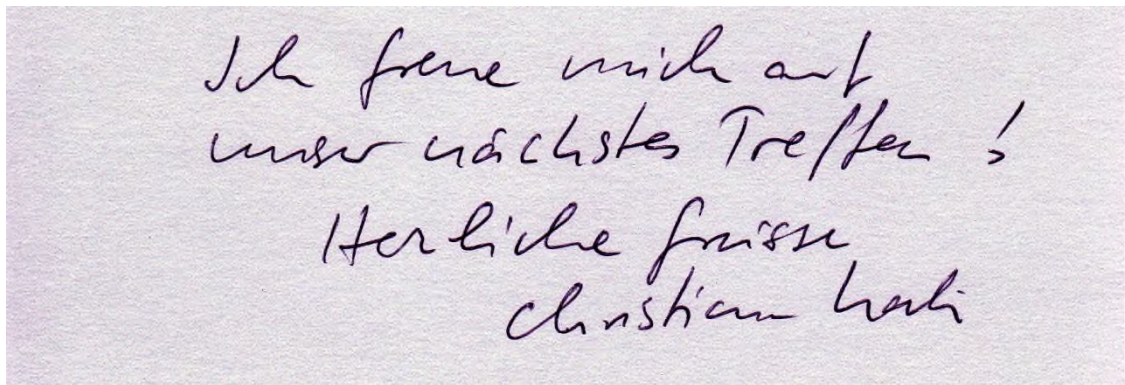 Ich freue mich auf
unser nächstes Treffen !
Herzliche Grüsse
Christian